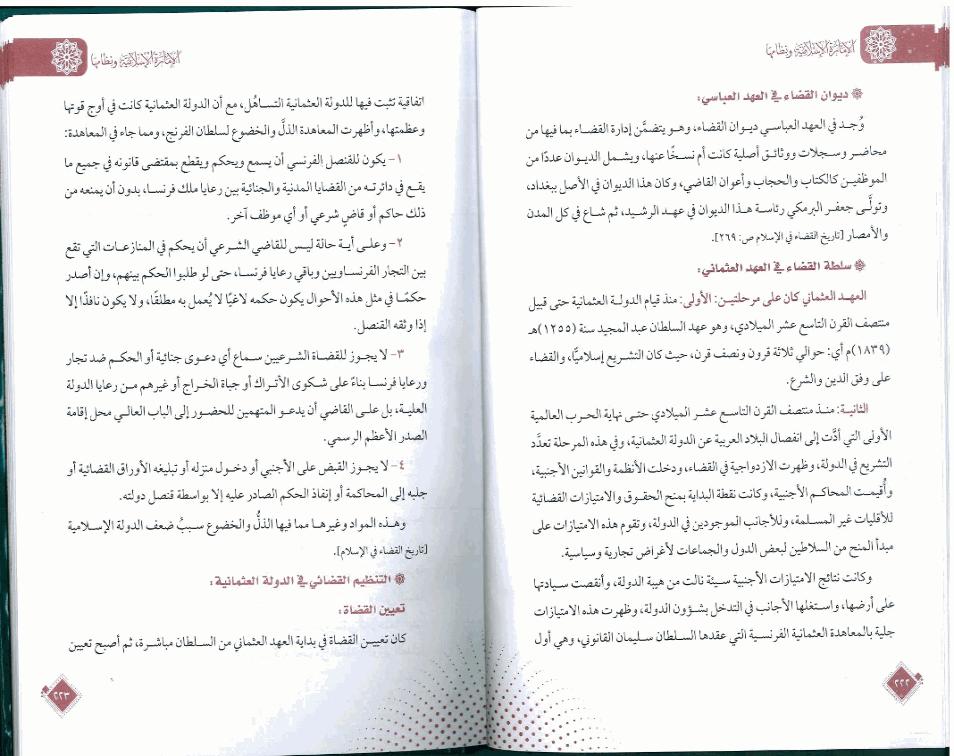 الإمارة الإسلامية ونظامها
❁ ديوان القضاء في العهد العباسي:
وُجد في العهد العباسي ديوان القضاء، وهو يتضمَّن إدارة القضاء بما فيها من
محاضر وسجلات ووثائق أصلية كانت أم نسخًا عنها، ويشمل الديوان عددًا من
الموظفين كالكتاب والحجاب وأعوان القاضي، وكان هذا الديوان في الأصل ببغداد،
وتولَّى جعفر البرمكي رئاسة هذا الديوان في عهد الرشيد، ثم شاع في كل المدن
والأمصار [تاريخ القضاء في الإسلام ص: ٢٦٩].
❁ سلطة القضاء في العهد العثماني:
العهد العثماني كان على مرحلتين: الأولى: منذ قيام الدولة العثمانية حتى قبيل
منتصف القرن التاسع عشر الميلادي، وهو عهد السلطان عبد المجيد سنة (١٢٥٥)هـ
(١٨٣٩)م أي: حوالي ثلاثة قرون ونصف قرن، حيث كان التشريع إسلاميًّا، والقضاء
على وفق الدين والشرع.
الثانية: منذ منتصف القرن التاسع عشر الميلادي حتى نهاية الحرب العالمية
الأولى التي أدَّت إلى انفصال البلاد العربية عن الدولة العثمانية، وفي هذه المرحلة تعدَّد
التشريع في الدولة، وظهرت الازدواجية في القضاء، ودخلت الأنظمة والقوانين الأجنبية،
وأُقيمت المحاكم الأجنبية، وكانت نقطة البداية بمنح الحقوق والامتيازات القضائية
للأقليات غير المسلمة، وللأجانب الموجودين في الدولة، وتقوم هذه الامتيازات على
مبدأ المنح من السلاطين لبعض الدول والجماعات لأغراض تجارية وسياسية.
وكانت نتائج الامتيازات الأجنبية سيئة نالت من هيبة الدولة، وأنقصت سيادتها
على أرضها، واستغلها الأجانب في التدخل بشؤون الدولة، وظهرت هذه الامتيازات
جلية بالمعاهدة العثمانية الفرنسية التي عقدها السلطان سليمان القانوني، وهي أول
٢٢٢
الإمارة الإسلامية ونظامها
اتفاقية تثبت فيها للدولة العثمانية التساهُل، مع أن الدولة العثمانية كانت في أوج قوتها
وعظمتها، وأظهرت المعاهدة الذلَّ والخضوع لسلطان الفرنج، ومما جاء في المعاهدة:
١- يكون للقنصل الفرنسي أن يسمع ويحكم ويقطع بمقتضى قانونه في جميع ما
يقع في دائرته من القضايا المدنية والجنائية بين رعايا ملك فرنسا، بدون أن يمنعه من
ذلك حاكم أو قاضٍ شرعي أو أي موظف آخر.
٢- وعلى أية حالة ليس للقاضي الشرعي أن يحكم في المنازعات التي تقع
بين التجار الفرنساويين وباقي رعايا فرنسا، حتى لو طلبوا الحكم بينهم، وإن أصدر
حكمًا في مثل هذه الأحوال يكون حكمه لاغيًا لا يُعمل به مطلقًا، ولا يكون نافذًا إلا
إذا وثقه القنصل.
٣- لا يجوز للقضاة الشرعيين سماع أي دعوى جنائية أو الحكم ضد تجار
ورعايا فرنسا بناءً على شكوى الأتراك أو جباة الخراج أو غيرهم من رعايا الدولة
العلية، بل على القاضي أن يدعو المتهمين للحضور إلى الباب العالي محل إقامة
الصدر الأعظم الرسمي.
٤- لا يجوز القبض على الأجنبي أو دخول منزله أو تبليغه الأوراق القضائية أو
جلبه إلى المحاكمة أو إنفاذ الحكم الصادر عليه إلا بواسطة قنصل دولته.
وهذه المواد وغيرها مما فيها الذلُّ والخضوع سببُ ضعف الدولة الإسلامية
[تاريخ القضاء في الإسلام].
❁ التنظيم القضائي في الدولة العثمانية:
تعيين القضاة:
كان تعيين القضاة في بداية العهد العثماني من السلطان مباشرة، ثم أصبح تعيين
٢٢٣